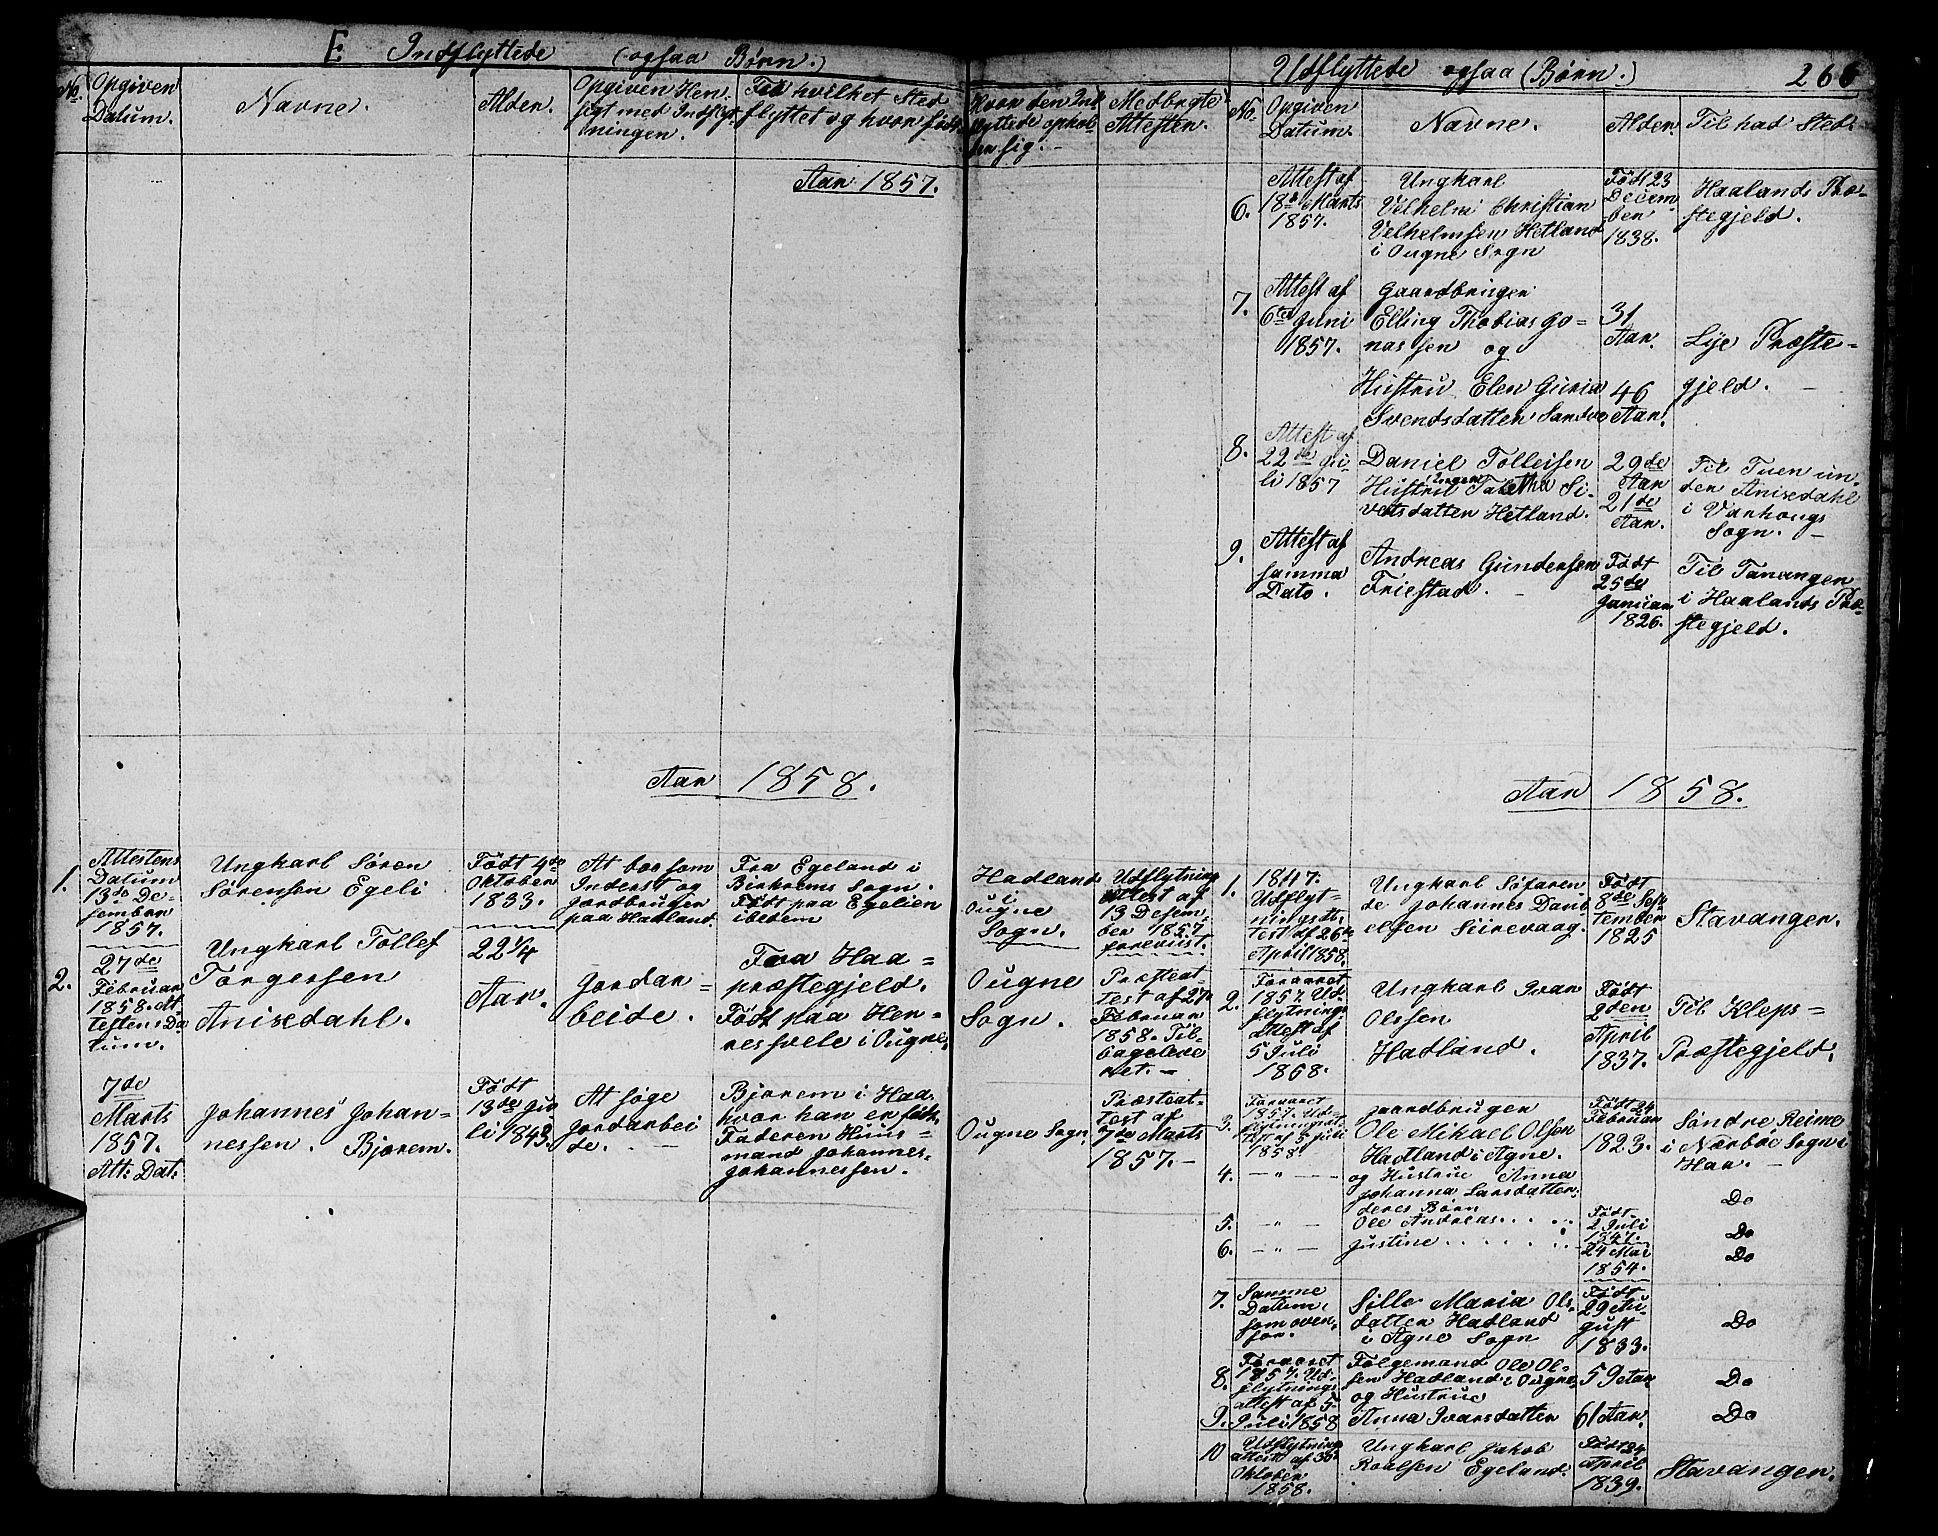 E Indflyttede (ogsaa Børn.)
No.
Opgiven
Datum.
Navne.
Alder.
Opgiven Hen
sigt med Indflyt
ningen.
Til hvilket Sted
flyttet og hvor født
Hvor den Ind
flyttede ophol
der sig.
Medbragte
Attester.
Aar 1857.
Aar 1858.
1.
Attestens
Datum
13de De-
sember
1857.
Ungkarl Søren
Sørensen Egeli
Født 4de
Oktober
1833.
At boe som
Inderst og
Jordbruger
paa Hadland.
Fra Egeland i
Birkrems Sogn.
Født paa Egelien
ibedem
Hadland
i
Ougne
Sogn.
Udflytning
Attest af
13 Desem-
ber 1857
forevist.
2.
27de
Februar
1858. At
testens Da
tum.
Ungkarl Tollef
Torgersen
Anisedahl.
22 1/4
Aar.
Jordar-
beide.
Fra Haa=
præstegjeld.
Født paa Hen-
nesvele i Ougne.
Ougne
Sogn.
Præsteat-
test af 27de
Februar
1858. Til-
bageleve
ret. -
7de
Marts
1857.
Att: Dat:
Johannes Johan-
nessen. Bjorem.
Født
13de Ju
li 1843.
At søge
Jordarbei
de.
Bjorem i Haa
hvor han er født
Faderen Huus=
mand Johannes
Johannessen.
Ougne Sogn
Præsteat-
test af
7de Marts
1857. -
Udflyttede ogsaa (Børn.) 266
No.
Opgiven
Datum.
Navne.
Alder
Til had Sted.
6.
Attest af
18de Marts
1857.
Ungkarl
Velhelm Christian
Velhelmsen Hetland
i Ougne Sogn
Født 23
Decem
ber
1838.
Haalands Præ-
stegjeld.
7.
Attest af
6te Juni
1857.
Gaardbruger
Elling Thobias Jo-
nassen og
Hustru Elen Guria
Svendsdatter Sandve
31
Aar.
46
Aar.
Lye Præste=
gjeld. -
8.
Attest af
22de Ju-
li 1857
Daniel Tolleisen
Hustru Inger Taletha Si-
vertsdatter Hetland.
29de
Aar
21de
Aar.
Til Tuen un-
der Anisedahl
i Varhougs
Sogn. -
9.
Attest af
samma
Dato.
Andreas Gundersen
Friestad. -
Født
25de
Januar
1826.
Til Tanangen
i Haalands Præ-
stegjeld.
Aar 1858.
1.
1847.
Udflyt-
nings At-
test af 26de
April 1858.
Ungkarl Søfaren
Johannes Dani
elsen Siirevaag.
Født
8de Sep
tember
1825
Stavanger.
2.
Foraaret
1857. Ud-
flytnings
attest af
5 Juli
1858.
Ungkarl Ivar
Olssen
Hadland.
Født
2den
April
1837.
Til Kleps=
Præstegjeld.
3.
Foraaret
1857. Ud-
flytningsat-
test af 5 Juli
1858
Gaardbruger
Ole Mikael Olsen
Hadland i Agne.
Født 24
Februar
1823.
Søndre Reime
i Nærboe Sogn i
Haa. -
4.
og Hustrue Anna
Johanna Larsdatter.
Do
deres Børn
5. -"-
Ole Andreas
Født
2 Juli
1847.
Do
6. -"-
Justine
24 Mai
1854.
Do
7.
Samme
Datum,
som oven-
for.
Sille Maria Ols-
datter Hadland
i Agne Sogn
Født
29 Au-
gust
1833.
Do
8.
Foraaret
1857. Ud-
flytnings
attest af 5
Juli 1858
Følgemand Ole Ol-
sen Hadland i Ougne
og Hustrue
59 Aar
Do
9.
Anna Ivarsdatter
61 Aar.
Do
10
Udflytning
attest af 30te
Oktober
1858.
Ungkarl Jakob
Roalsen Egeland.
Født 24
April
1839.
Stavanger.